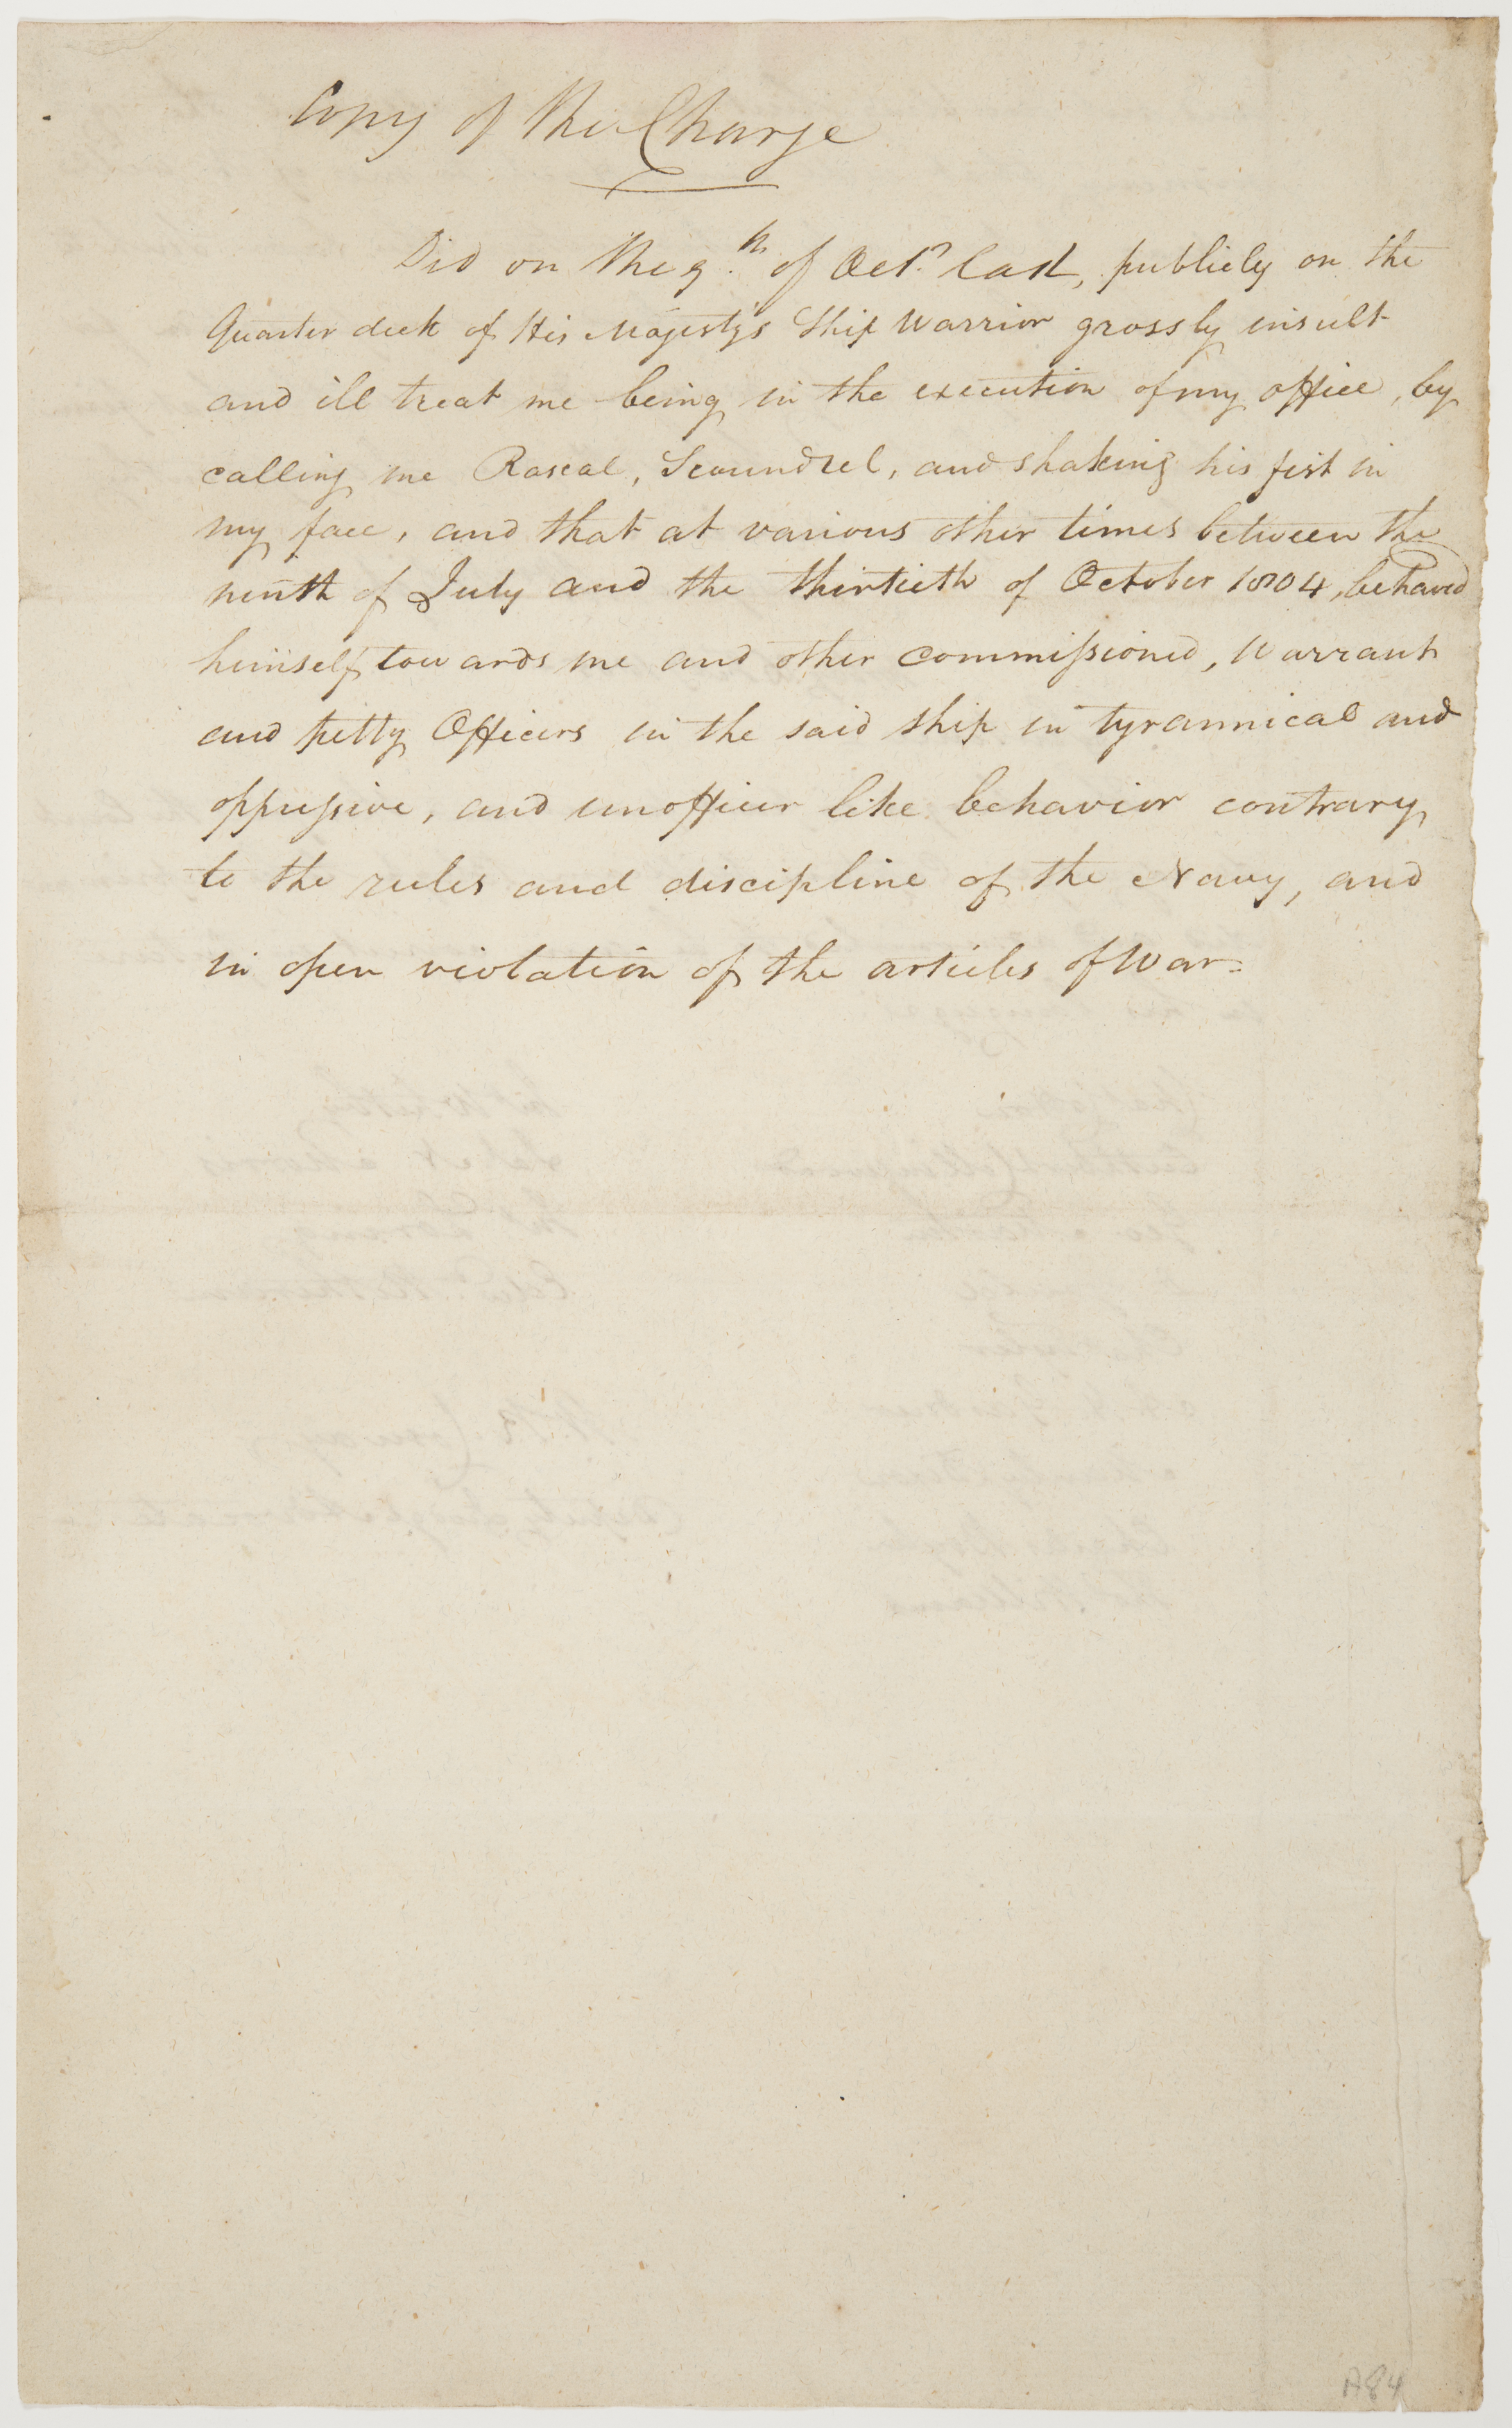 Copy of the Charge
Did on the 9.th of Oct.r last, publicly on the
Quarter deck of His Majesty's Ship Warrior grossly insult
and ill treat me being in the execution of my office, by
calling me Rascal, Scoundrel, and shaking his fist in
my face, and that at various other times between the
ninth of July and the thirtieth of October 1804, behaved
himself towards me and other commissioned, Warrant
and petty Officers in the said ship in tyrannical and
oppressive, and unofficer like behavior contrary
to the rules and discipline of the Navy, and
in open violation of the articles of War=
A84